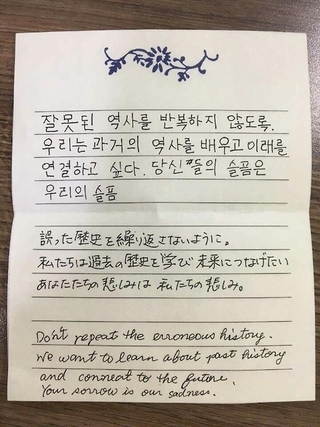 잘못된 역사를 반복하지 않도록.
우리는 과거의 역사를 배우고 이래를
연결하고 싶다. 당신들의 슬픔은
우리의 슬픔
誤った歴史を繰り返さないように。
私たちは過去の歴史を学び 未来につなげたい
あなたたちの悲しみは 私たちの悲しみ。
Don't repeat the erroneous history.
We want to learn about past history
and connect to the future.
Your sorrow is our sadness.